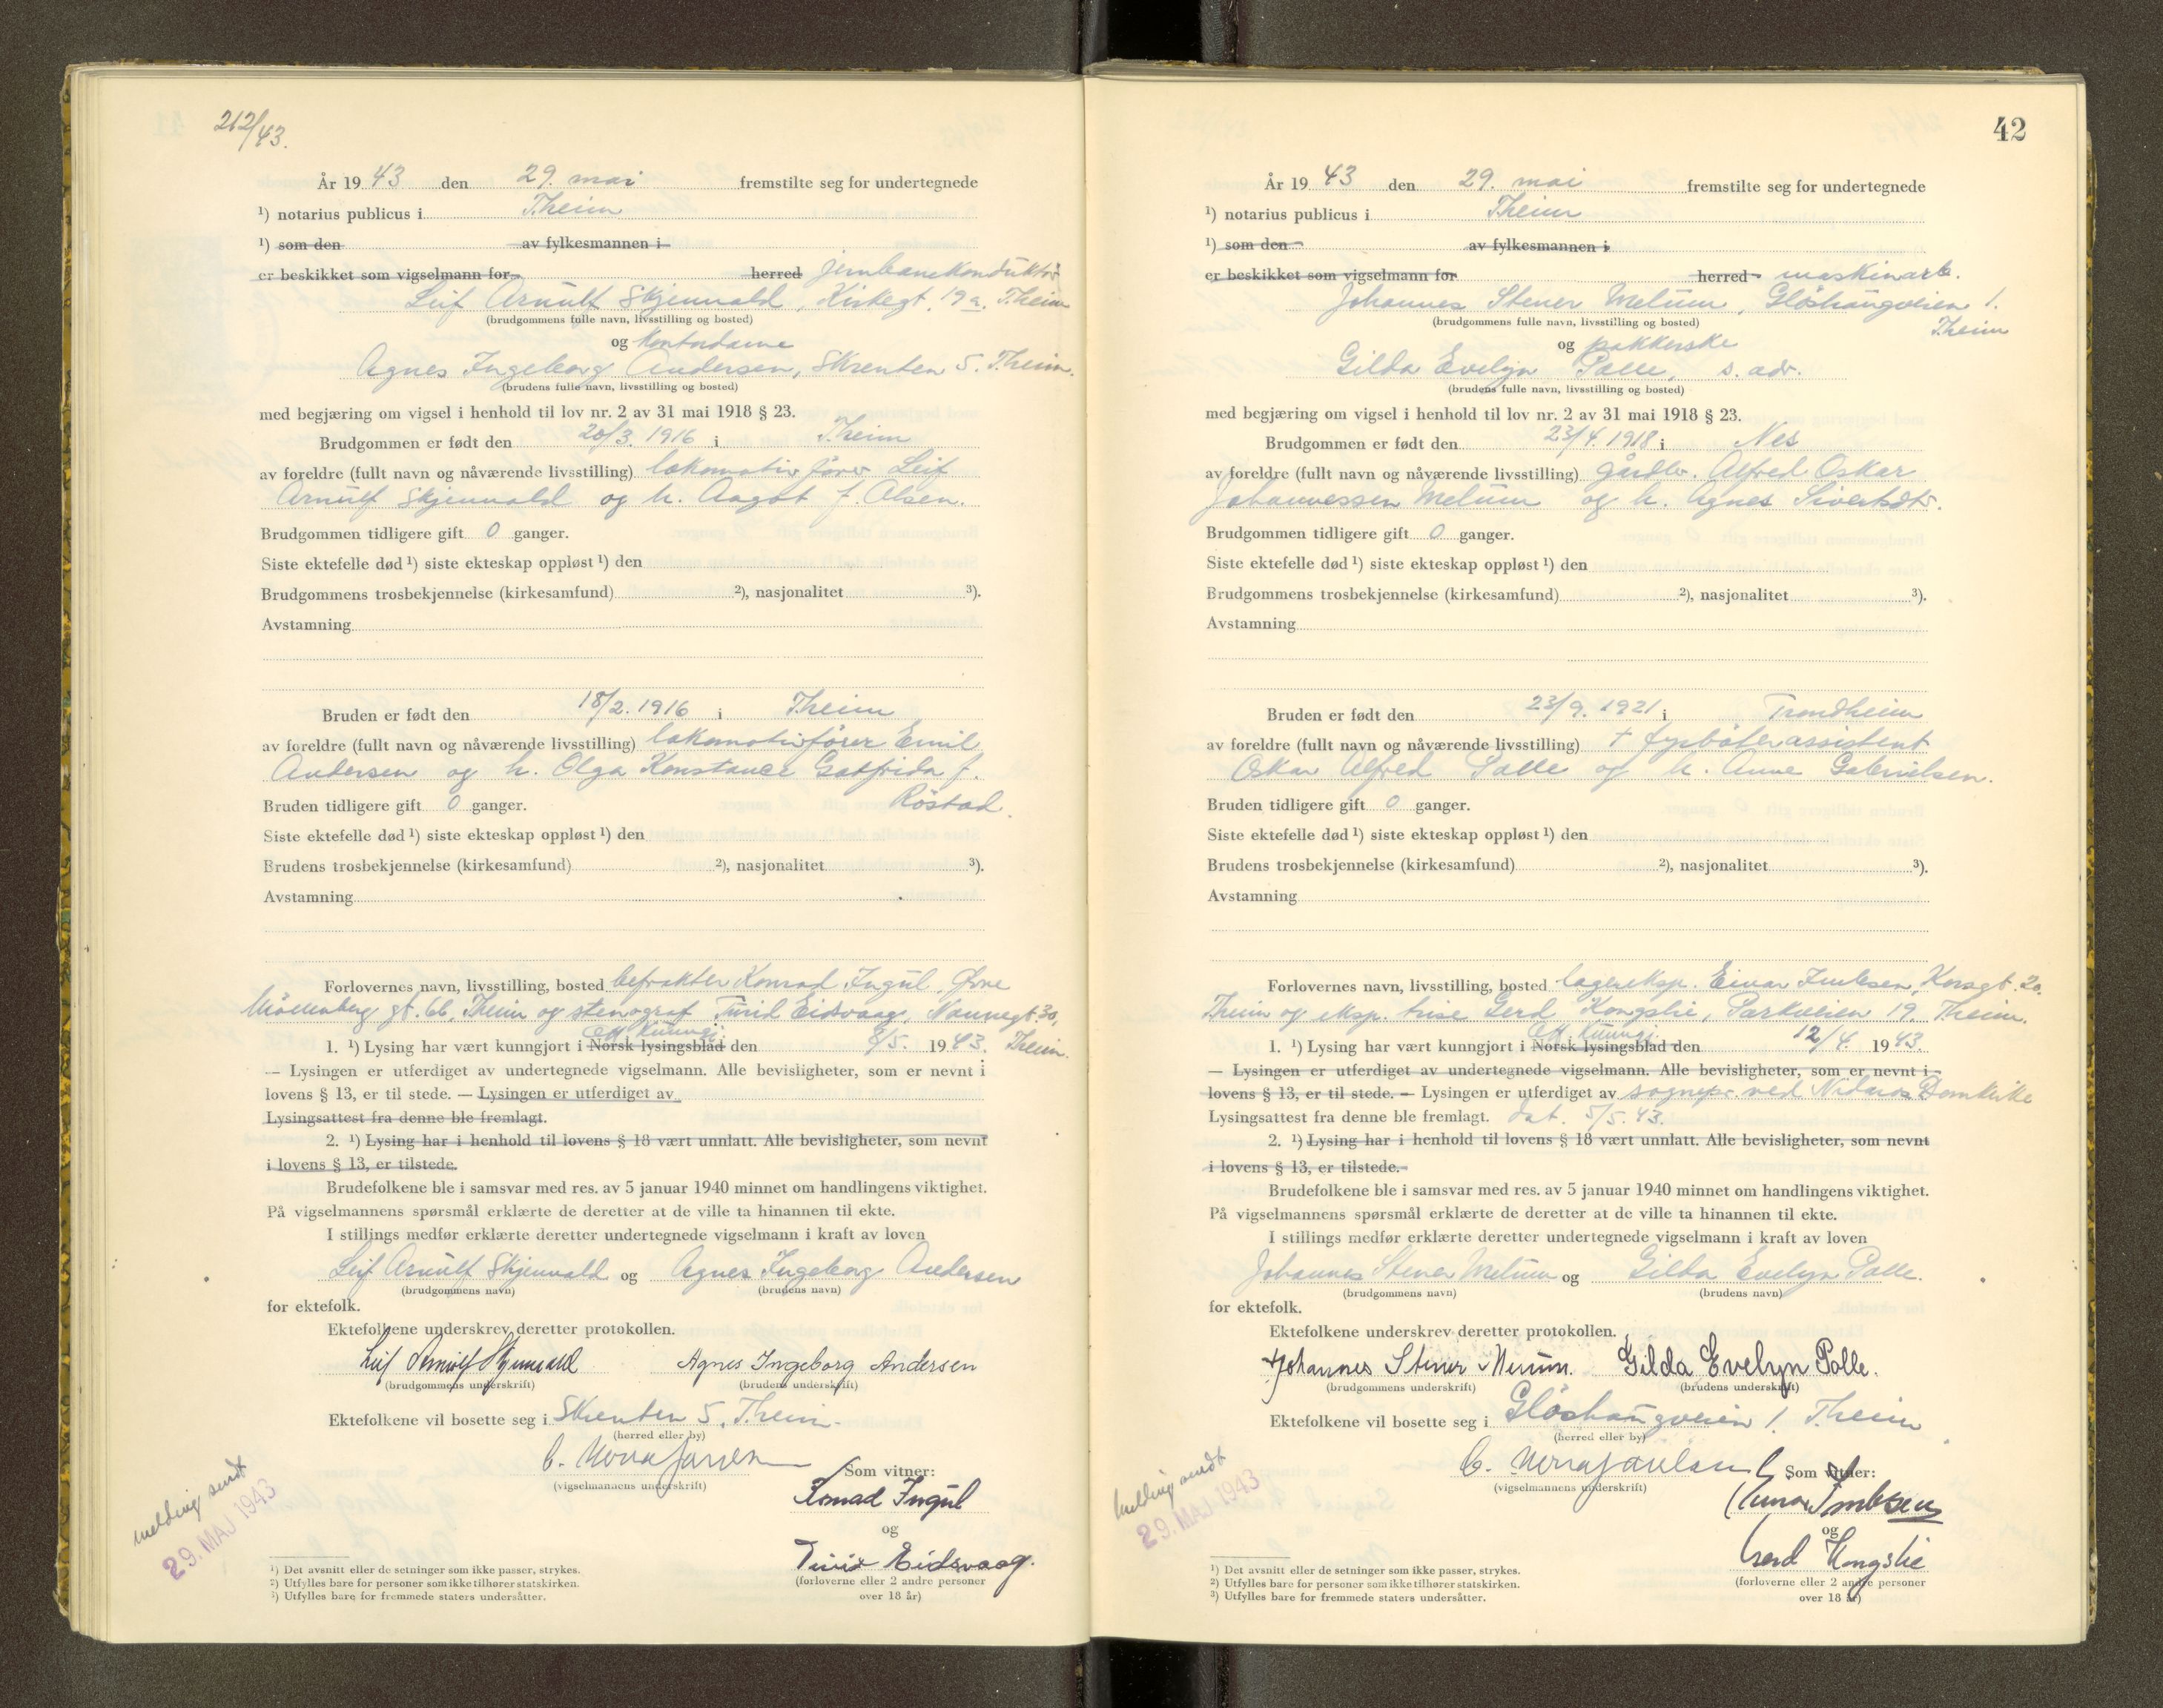 212/43.
År 1943 den 29. mai fremstilte seg for undertegnede
¹) notarius publicus i T.heim
¹) som den av fylkesmannen i
er beskikket som vigselmann for herred jernbanekonduktør
Leif Arnulf Skjenvald, Kirkegt. 19a. T.heim
(brudgommens fulle navn, livsstilling og bosted)
og Kontordame
Agnes Ingeborg Andersen, Skrenten 5. T.heim.
(brudens fulle navn, livsstilling og bosted)
med begjæring om vigsel i henhold til lov nr. 2 av 31 mai 1918 § 23.
Brudgommen er født den 20/3. 1916 i T.heim
av foreldre (fullt navn og nåværende livsstilling) lokomotivfører Leif
Arnulf Skjenvald og h. Aagot f. Olsen.
Brudgommen tidligere gift 0 ganger.
Siste ektefelle død ¹) siste ekteskap oppløst ¹) den
Brudgommens trosbekjennelse (kirkesamfund) ²), nasjonalitet ³).
Avstamning
Bruden er født den 18/2. 1916 i T.heim
av foreldre (fullt navn og nåværende livsstilling) lokomotivfører Emil
Andersen og h. Olga Konstance Gotfrida f.
Røstad.
Bruden tidligere gift 0 ganger.
Siste ektefelle død ¹) siste ekteskap oppløst ¹) den
Brudens trosbekjennelse (kirkesamfund) ²), nasjonalitet ³).
Avstamning
Forlovernes navn, livsstilling, bosted befrakter Konrad Ingul, Øvre
Møllenberg gt. 66, T.heim og stenograf Turid Eidsvaag, Nonnegt 30,
T.heim.
Off. Kunngj.
1. ¹) Lysing har vært kunngjort i Norsk lysingsblad den 8/5. 1943.
— Lysingen er utferdiget av undertegnede vigselmann. Alle bevisligheter, som er nevnt i
lovens § 13, er til stede. — Lysingen er utferdiget av
Lysingsattest fra denne ble fremlagt.
2. ¹) Lysing har i henhold til lovens § 18 vært unnlatt. Alle bevisligheter, som nevnt
i lovens § 13, er tilstede.
Brudefolkene ble i samsvar med res. av 5 januar 1940 minnet om handlingens viktighet.
På vigselmannens spørsmål erklærte de deretter at de ville ta hinannen til ekte.
I stillings medfør erklærte deretter undertegnede vigselmann i kraft av loven
Leif Arnulf Skjenvald og Agnes Ingeborg Andersen
(brudgommens navn) (brudens navn)
for ektefolk.
Ektefolkene underskrev deretter protokollen.
Leif Arnulf Skjenvald Agnes Ingeborg Andersen
(brudgommens underskrift) (brudens underskrift)
Ektefolkene vil bosette seg i Skrenten 5. T.heim.
(herred eller by)
(vigselmannens underskrift)
Som vitner:
Konrad Ingul
og
Turid Eidsvaag.
(forloverne eller 2 andre personer
over 18 år)
melding sendt
29. MAJ 1943
¹) Det avsnitt eller de setninger som ikke passer, strykes.
²) Utfylles bare for personer som ikke tilhører statskirken.
³) Utfylles bare for fremmede staters undersåtter.
42
År 1943 den 29. mai fremstilte seg for undertegnede
¹) notarius publicus i T.heim
¹) som den av fylkesmannen i
er beskikket som vigselmann for herred maskinarb.
Johannes Stener Melum, Gløshaugveien 1.
T.heim
(brudgommens fulle navn, livsstilling og bosted)
og pakkerske
Gilda Evelyn Palle, s. adr.
(brudens fulle navn, livsstilling og bosted)
med begjæring om vigsel i henhold til lov nr. 2 av 31 mai 1918 § 23.
Brudgommen er født den 23/4. 1918 i Nes
av foreldre (fullt navn og nåværende livsstilling) gårdbr. Alfred Oskar
Johannessen Melum og h. Agnes Sivertsdtr.
Brudgommen tidligere gift 0 ganger.
Siste ektefelle død ¹) siste ekteskap oppløst ¹) den
Brudgommens trosbekjennelse (kirkesamfund) ²), nasjonalitet ³).
Avstamning
Bruden er født den 23/9. 1921 i Trondheim
av foreldre (fullt navn og nåværende livsstilling) † fyrbøterassistent
Oskar Alfred Palle og h. Anne Gabrielsen.
Bruden tidligere gift 0 ganger.
Siste ektefelle død ¹) siste ekteskap oppløst ¹) den
Brudens trosbekjennelse (kirkesamfund) ²), nasjonalitet ³).
Avstamning
Forlovernes navn, livsstilling, bosted lagereksp. Einar Imbsen, Korsgt. 20.
T.heim og eksp. trise Gerd Kongslie, Parkveien 19. T.heim.
Off. Kunngj.
1. ¹) Lysing har vært kunngjort i Norsk lysingsblad den 12/4. 1943.
— Lysingen er utferdiget av undertegnede vigselmann. Alle bevisligheter, som er nevnt i
lovens § 13, er til stede. — Lysingen er utferdiget av sognepr. ved Nidaros Domkirke
Lysingsattest fra denne ble fremlagt. dat. 5/5. 43.
2. ¹) Lysing har i henhold til lovens § 18 vært unnlatt. Alle bevisligheter, som nevnt
i lovens § 13, er tilstede.
Brudefolkene ble i samsvar med res. av 5 januar 1940 minnet om handlingens viktighet.
På vigselmannens spørsmål erklærte de deretter at de ville ta hinannen til ekte.
I stillings medfør erklærte deretter undertegnede vigselmann i kraft av loven
Johannes Stener Melum og Gilda Evelyn Palle.
(brudgommens navn) (brudens navn)
for ektefolk.
Ektefolkene underskrev deretter protokollen.
Johannes Stener Melum. Gilda Evelyn Palle.
(brudgommens underskrift) (brudens underskrift)
Ektefolkene vil bosette seg i Gløshaugveien 1. T.heim
(herred eller by)
(vigselmannens underskrift)
Som vitner:
Einar Imbsen
og
Gerd Kongslie
(forloverne eller 2 andre personer
over 18 år)
melding sendt
29. MAJ 1943
¹) Det avsnitt eller de setninger som ikke passer, strykes.
²) Utfylles bare for personer som ikke tilhører statskirken.
³) Utfylles bare for fremmede staters undersåtter.